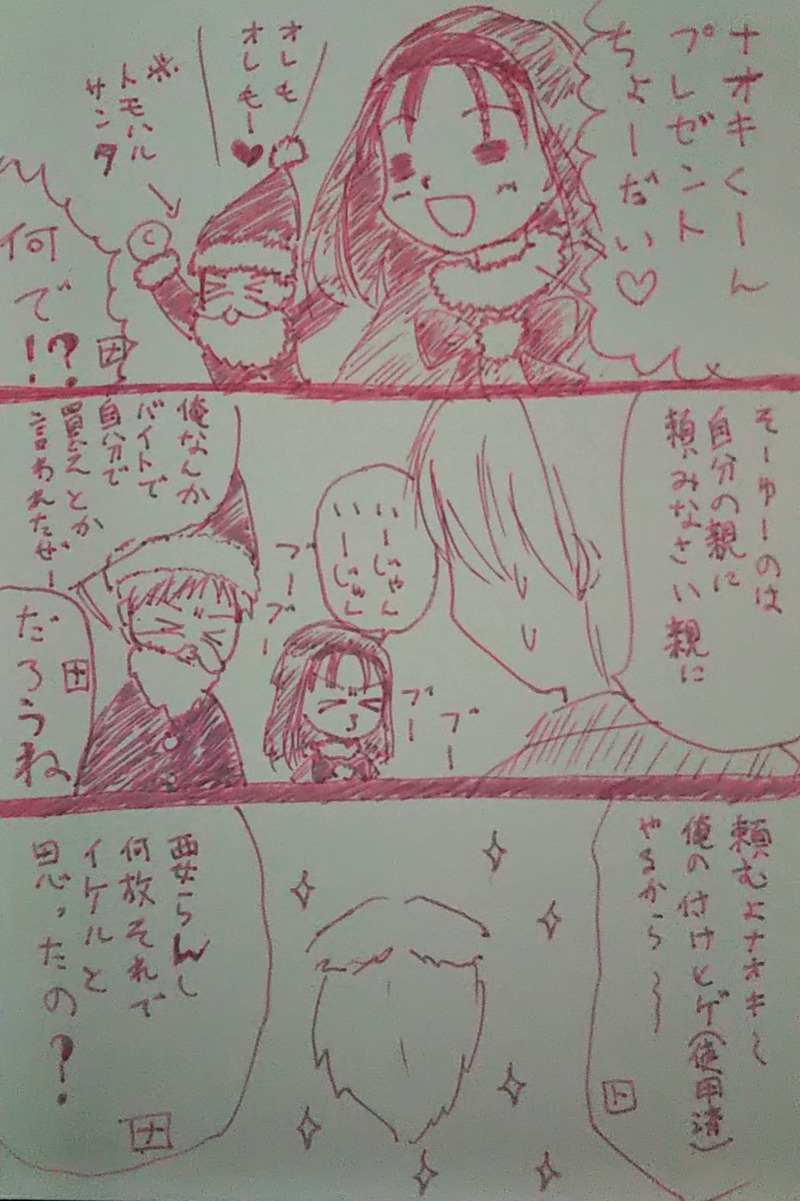 ナオキくーん
プレゼント
ちょーだい♡
オレも
オレもー♥
※
トモハル
サンタ
何で
!?
ナ
そーゆーのは
自分の親に
頼みなさい親に
いーじゃん
いーじゃん
ブーブー
ブー
ブー
俺なんか
バイトで
自分で
買えとか
言われたぜー
だろうね
ナ
頼むよナオキ~
俺の付けヒゲ(使用済)
やるから~~
ト
要らんし
何故それで
イケルと
思ったの?
ナ